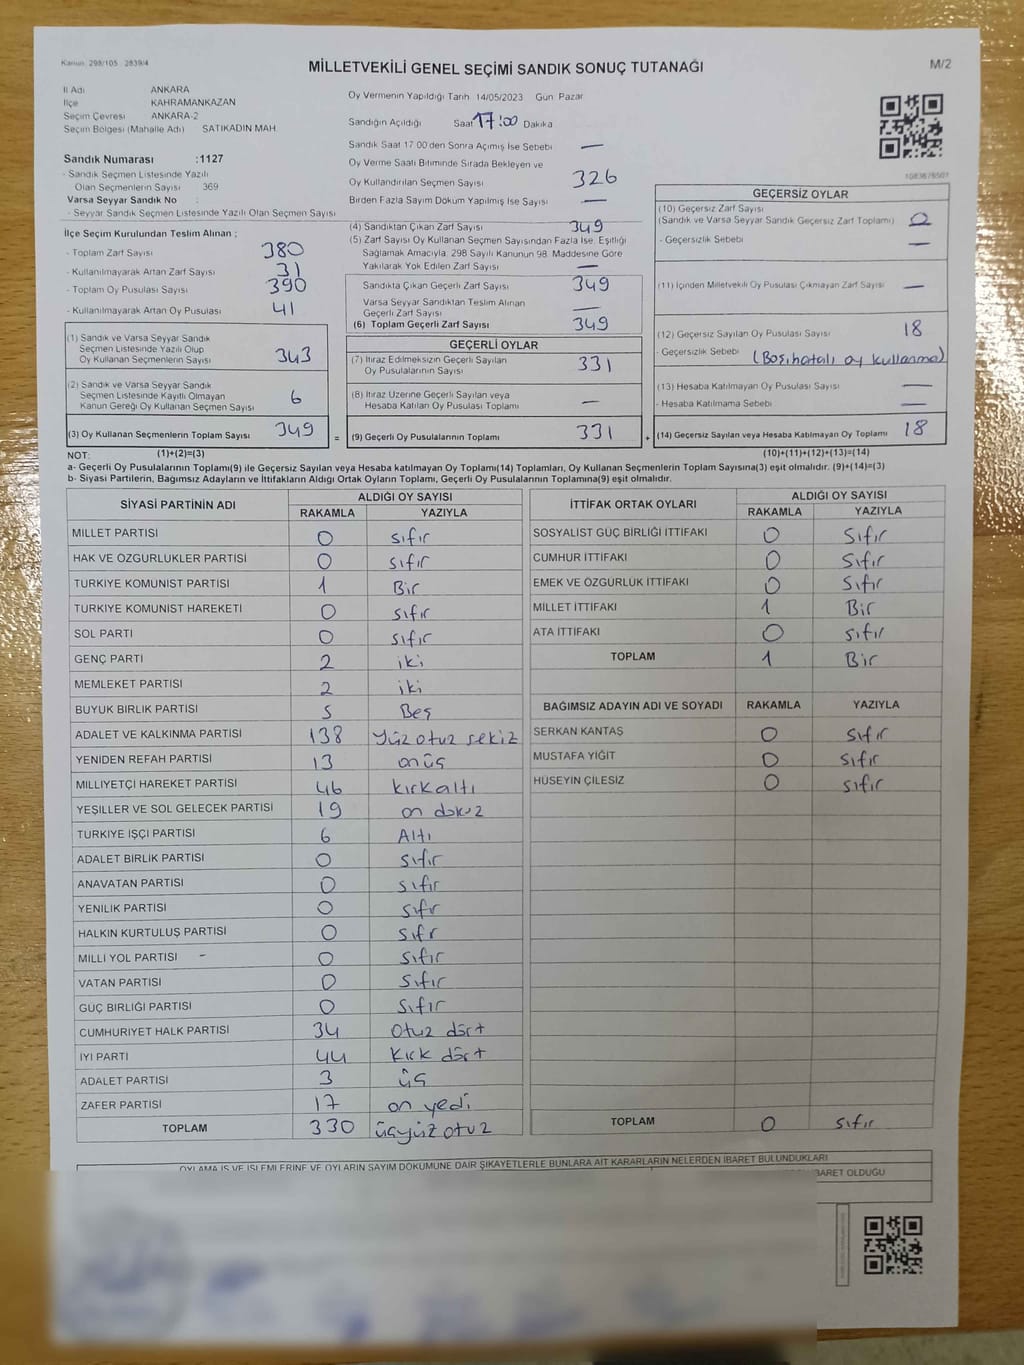 Kanun: 298/105 2839/4
MİLLETVEKİLİ GENEL SEÇİMİ SANDIK SONUÇ TUTANAĞI
M/2
İl Adı ANKARA
İlçe KAHRAMANKAZAN
Seçim Çevresi ANKARA-2
Seçim Bölgesi (Mahalle Adı) SATIKADIN MAH.
Sandık Numarası :1127
- Sandık Seçmen Listesinde Yazılı
Olan Seçmenlerin Sayısı 369
Varsa Seyyar Sandık No :
- Seyyar Sandık Seçmen Listesinde Yazılı Olan Seçmen Sayısı
İlçe Seçim Kurulundan Teslim Alınan ;
- Toplam Zarf Sayısı 380
- Kullanılmayarak Artan Zarf Sayısı 31
- Toplam Oy Pusulası Sayısı 390
- Kullanılmayarak Artan Oy Pusulası 41
(1) Sandık ve Varsa Seyyar Sandık
Seçmen Listesinde Yazılı Olup
Oy Kullanan Seçmenlerin Sayısı 343
(2) Sandık ve Varsa Seyyar Sandık
Seçmen Listesinde Kayıtlı Olmayan
Kanun Gereği Oy Kullanan Seçmen Sayısı 6
(3) Oy Kullanan Seçmenlerin Toplam Sayısı 349 =
Oy Vermenin Yapıldığı Tarih 14/05/2023 Gün Pazar
Sandığın Açıldığı Saat 17:00 Dakika
Sandık Saat 17 00'den Sonra Açımış İse Sebebi —
Oy Verme Saati Bitiminde Sırada Bekleyen ve
Oy Kullandırılan Seçmen Sayısı 326
Birden Fazla Sayım Döküm Yapılmış İse Sayısı —
(4) Sandıktan Çıkan Zarf Sayısı 349
(5) Zarf Sayısı Oy Kullanan Seçmen Sayısından Fazla İse, Eşitliği
Sağlamak Amacıyla, 298 Sayılı Kanunun 98. Maddesine Göre
Yakılarak Yok Edilen Zarf Sayısı —
Sandıkta Çıkan Geçerli Zarf Sayısı 349
Varsa Seyyar Sandıktan Teslim Alınan
Geçerli Zarf Sayısı —
(6) Toplam Geçerli Zarf Sayısı 349
GEÇERLİ OYLAR
(7) İtiraz Edilmeksizin Geçerli Sayılan
Oy Pusulalarının Sayısı 331
(8) İtiraz Üzerine Geçerli Sayılan veya
Hesaba Katılan Oy Pusulası Toplamı —
(9) Geçerli Oy Pusulalarının Toplamı 331 +
1083678501
GEÇERSİZ OYLAR
(10) Geçersiz Zarf Sayısı
(Sandık ve Varsa Seyyar Sandık Geçersiz Zarf Toplamı) 0
- Geçersizlik Sebebi —
(11) İçinden Milletvekili Oy Pusulası Çıkmayan Zarf Sayısı —
(12) Geçersiz Sayılan Oy Pusulası Sayısı 18
- Geçersizlik Sebebi (Boş,hatalı oy kullanma)
(13) Hesaba Katılmayan Oy Pusulası Sayısı —
- Hesaba Katılmama Sebebi —
(14) Geçersiz Sayılan veya Hesaba Katılmayan Oy Toplamı 18
NOT: (1)+(2)=(3) (10)+(11)+(12)+(13)=(14)
a- Geçerli Oy Pusulalarının Toplamı(9) ile Geçersiz Sayılan veya Hesaba katılmayan Oy Toplamı(14) Toplamları, Oy Kullanan Seçmenlerin Toplam Sayısına(3) eşit olmalıdır. (9)+(14)=(3)
b- Siyasi Partilerin, Bağımsız Adayların ve İttifakların Aldığı Ortak Oyların Toplamı, Geçerli Oy Pusulalarının Toplamına(9) eşit olmalıdır.
SİYASİ PARTİNİN ADI ALDIĞI OY SAYISI
RAKAMLA YAZIYLA
MİLLET PARTİSİ 0 sıfır
HAK VE ÖZGÜRLÜKLER PARTİSİ 0 sıfır
TÜRKİYE KOMÜNİST PARTİSİ 1 Bir
TÜRKİYE KOMÜNİST HAREKETİ 0 sıfır
SOL PARTİ 0 sıfır
GENÇ PARTİ 2 iki
MEMLEKET PARTİSİ 2 iki
BÜYÜK BİRLİK PARTİSİ 5 Beş
ADALET VE KALKINMA PARTİSİ 138 Yüz otuz sekiz
YENİDEN REFAH PARTİSİ 13 onüç
MİLLİYETÇİ HAREKET PARTİSİ 46 kırkaltı
YEŞİLLER VE SOL GELECEK PARTİSİ 19 on dokuz
TÜRKİYE İŞÇİ PARTİSİ 6 Altı
ADALET BİRLİK PARTİSİ 0 sıfır
ANAVATAN PARTİSİ 0 sıfır
YENİLİK PARTİSİ 0 sıfr
HALKIN KURTULUŞ PARTİSİ 0 sıfr
MİLLİ YOL PARTİSİ - 0 sıfır
VATAN PARTİSİ 0 sıfır
GÜÇ BİRLİĞİ PARTİSİ 0 sıfır
CUMHURİYET HALK PARTİSİ 34 Otuz dört
İYİ PARTİ 44 Kırk dört
ADALET PARTİSİ 3 üç
ZAFER PARTİSİ 17 on yedi
TOPLAM 330 üçyüz otuz
İTTİFAK ORTAK OYLARI ALDIĞI OY SAYISI
RAKAMLA YAZIYLA
SOSYALİST GÜÇ BİRLİĞİ İTTİFAKI 0 Sıfır
CUMHUR İTTİFAKI 0 Sıfır
EMEK VE ÖZGÜRLÜK İTTİFAKI 0 Sıfır
MİLLET İTTİFAKI 1 Bir
ATA İTTİFAKI 0 sıfır
TOPLAM 1 Bir
BAĞIMSIZ ADAYIN ADI VE SOYADI RAKAMLA YAZIYLA
SERKAN KANTAŞ 0 Sıfır
MUSTAFA YİĞİT 0 sıfır
HÜSEYİN ÇİLESİZ 0 sıfır
TOPLAM 0 sıfır
OYLAMA İŞ VE İŞLEMLERİNE VE OYLARIN SAYIM DÖKÜMÜNE DAİR ŞİKAYETLERLE BUNLARA AİT KARARLARIN NELERDEN İBARET BULUNDUKLARI
İBARET OLDUĞU